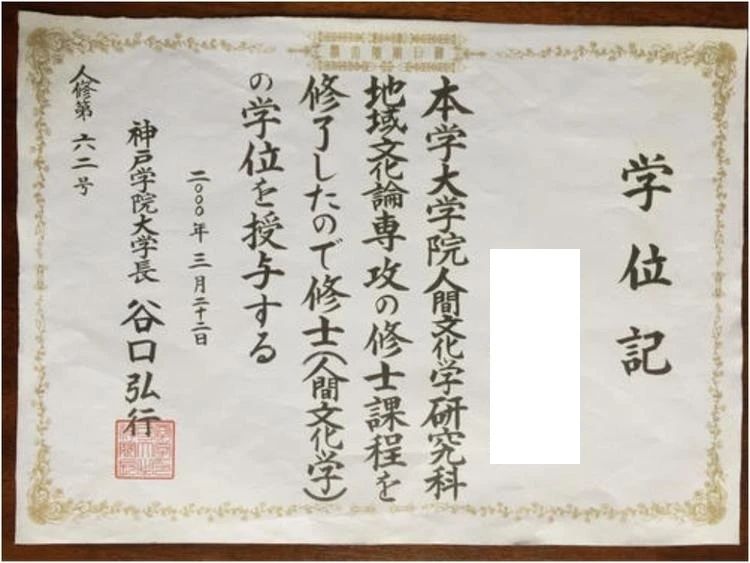 学位記
本学大学院人間文化学研究科
地域文化論専攻の修士課程を
修了したので修士(人間文化学)
の学位を授与する
二〇〇〇年三月二十二日
神戸学院大学長 谷口弘行
人修第六二号